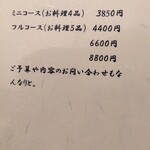 ミニコース(お料理4品) 3850円
フルコース(お料理5品) 4400円
6600円
8800円
ご予算や内容のお問い合わせもな
んなりと。